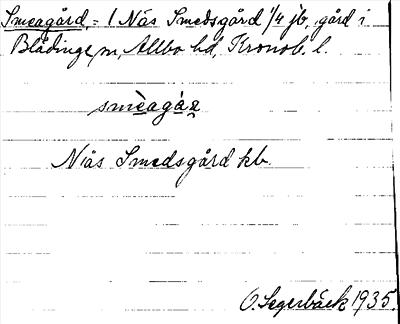 Smeagård, = 1 Näs Smedsgård 1/4 jb, gård i
Blädinge sn, Allbo hd, Kronob. l.
smèagáṛ
Näs Smedsgård kb.
O. Segerbäck 1935.